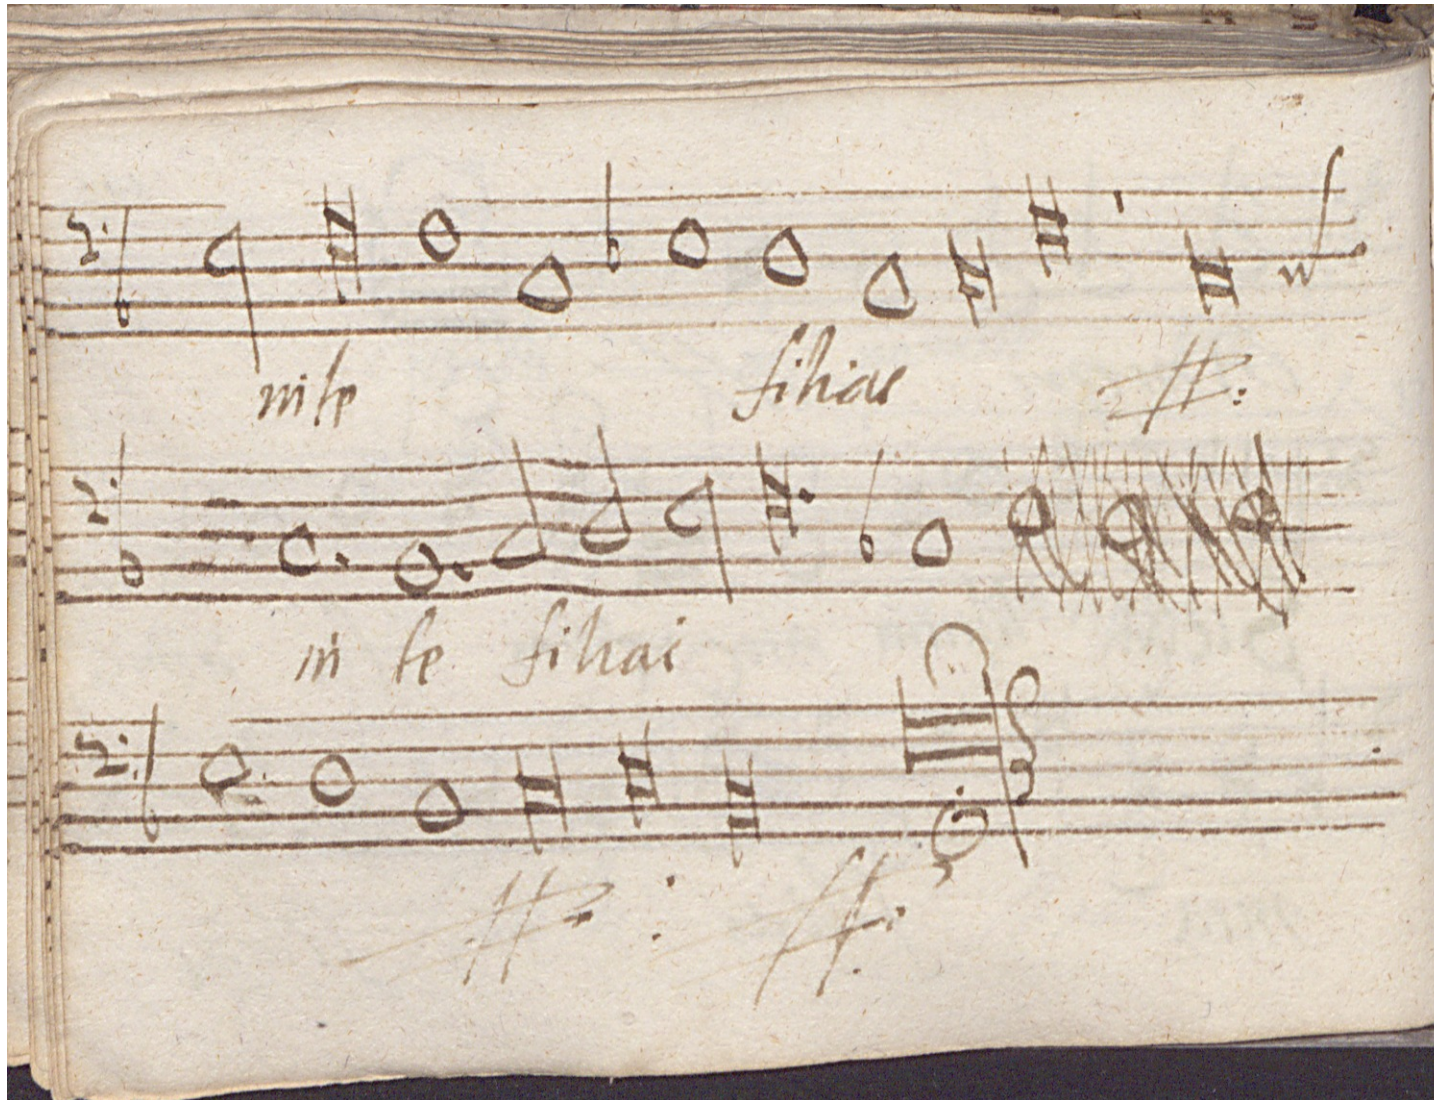 in te filias
in te filias